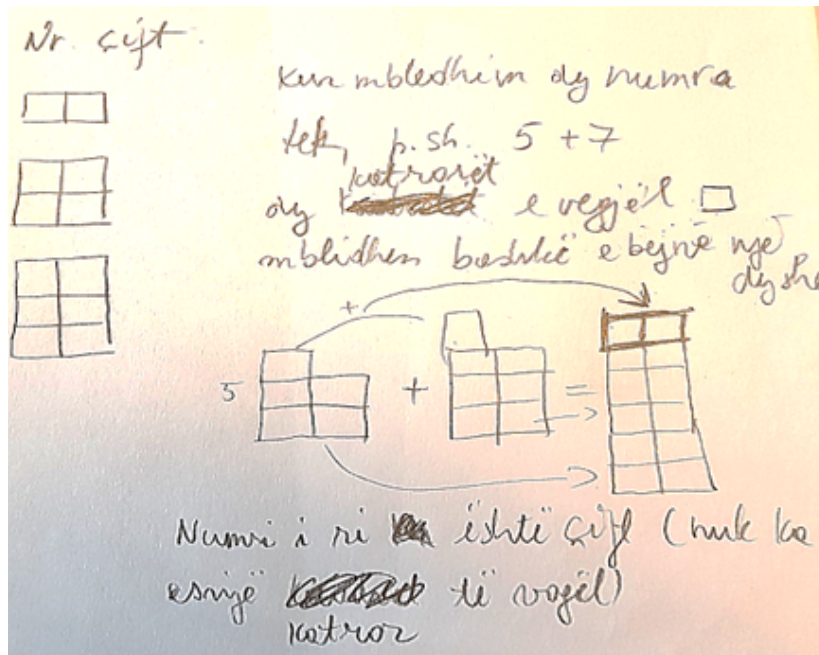 Nr. çift.
Kur mbledhim dy numra
tek, p.sh. 5 + 7
dy katrorët e vegjël
mblidhen bashkë e bëjnë një
dyshe
+
5 + =
Numri i ri është çift (nuk ka
asnjë katror të vogël)